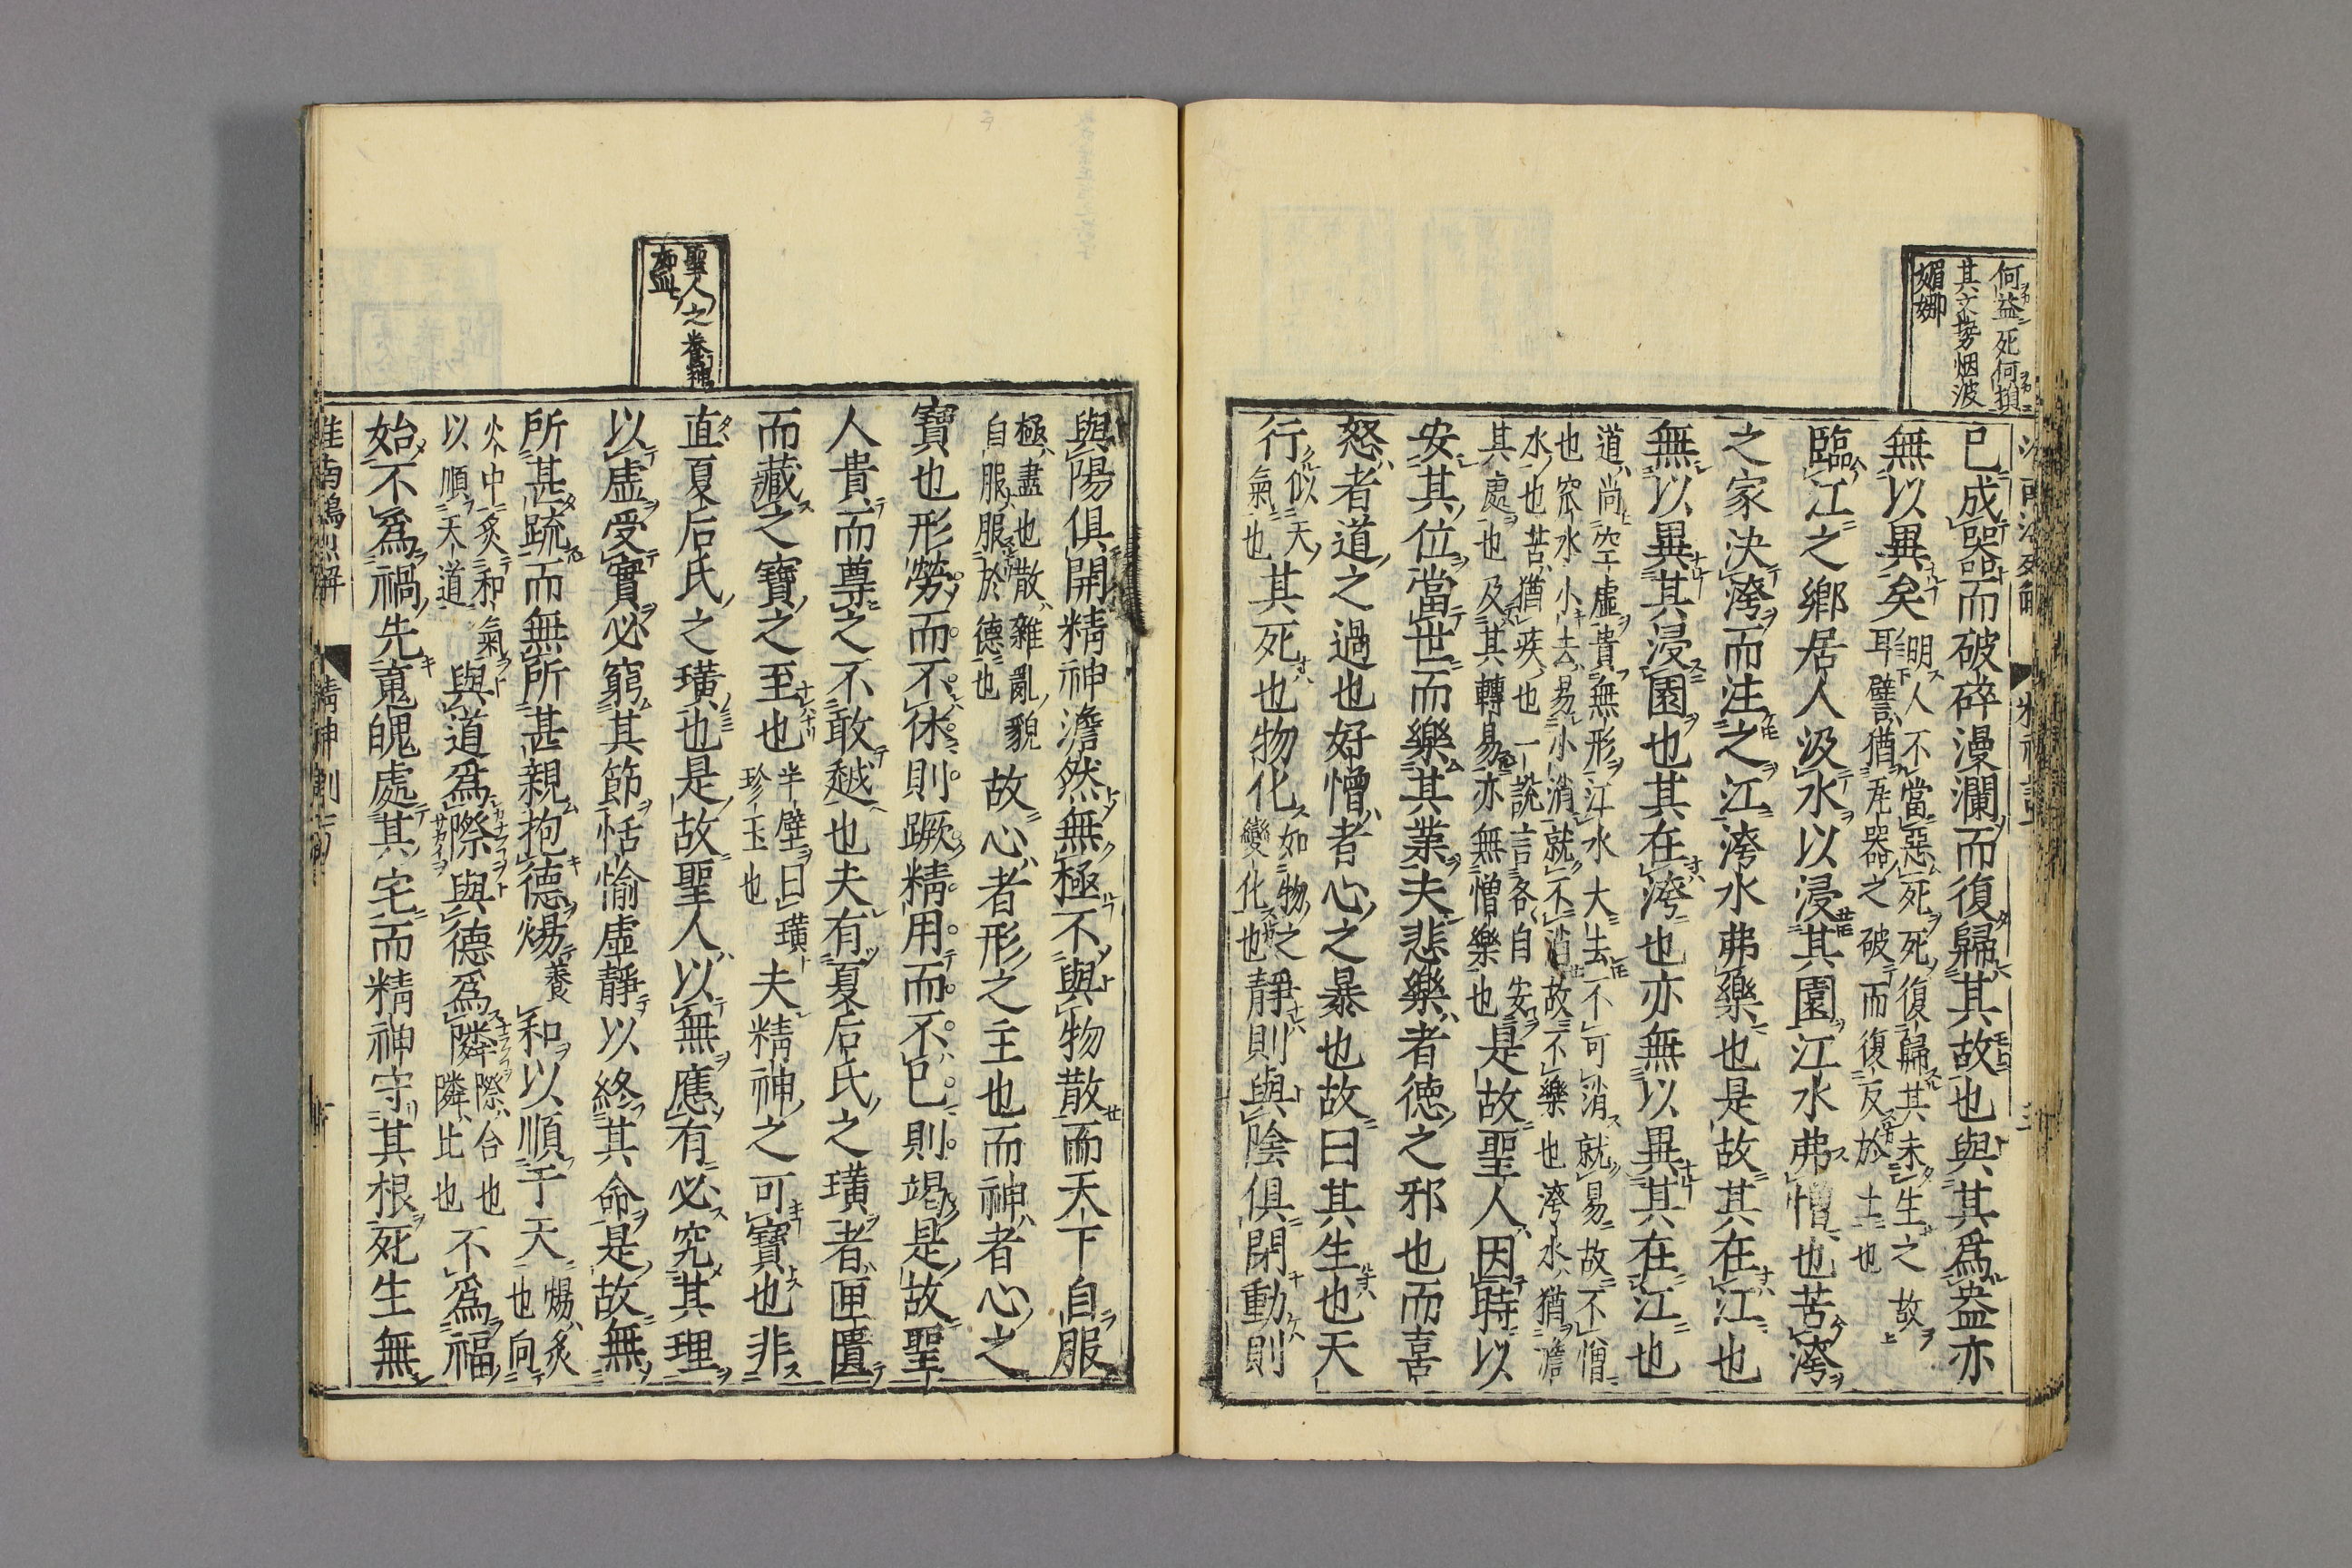 何益死何損
其文勢烟波
媚娜
已成器而破碎漫瀾而復歸其故也與其爲盆亦
無以異矣
明人不當惡死死復歸其未生之故
耳譬猶瓦器之破而復反於土也
臨江之鄉居人汲水以浸其園江水弗憎也苦洿
之家決洿而注之江洿水弗樂也是故其在江也
無以異其浸園也其在洿也亦無以異其在江也
道尚空虛貴無形江水大去不可消就易故不憎
也窊水小去易小消就不消故不樂也洿水猶澹
水也苦猶疾也一說言各自安
其處也及其轉易亦無憎樂也
是故聖人因時以
安其位當世而樂其業夫悲樂者德之邪也而喜
怒者道之過也好憎者心之暴也故曰其生也天
行
似天
氣也
其死也物化
如物之
變化也
靜則與陰俱閉動則
聖人之養神
如此
與陽俱開精神澹然無極不與物散而天下自服
極盡也散雜亂貌
自服服於德也
故心者形之主也而神者心之
寶也形勞而不休則蹶精用而不已則竭是故聖
人貴而尊之不敢越也夫有夏后氏之璜者匣匱
而藏之寶之至也
半璧曰璜
珍玉也
夫精神之可寶也非
直夏后氏之璜也是故聖人以無應有必究其理
以虛受實必窮其節恬愉虛靜以終其命是故無
所甚疏而無所甚親抱德煬
養
和以順于天
煬炙
也向
火中炙和氣
以順天道
與道爲際與德爲隣
際合也
隣比也
不爲福
始不爲禍先䰟魄處其宅而精神守其根死生無
精神訓七